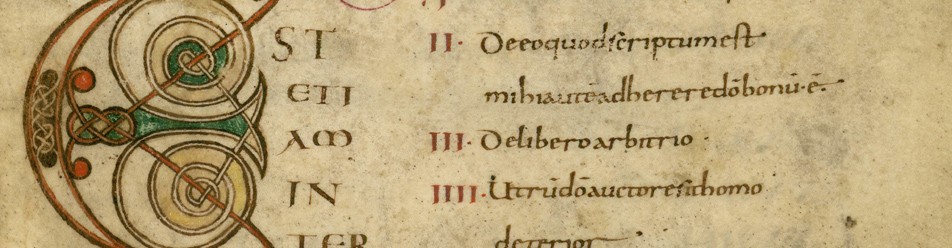 EST
ETI
AM
IN
TER
II· De eo quod scriptum est
mihi autē adherere dō bonū· ē·
III· De libero arbitrio·
IIII· Utrū dō auctore sit homo
deterior